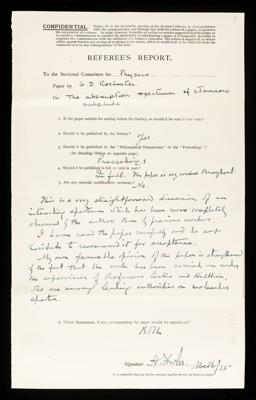 CONFIDENTIAL
REFEREE'S REPORT.
To the Sectional Committee for Physics
Paper by G D Rochester
On The absorption spectrum of Stannous
sulphide
1. Is the paper suitable for reading before the Society, or should it be read in title only?
2. Should it be published by the Society? Yes
3. Should it be published in the "Philosophical Transactions" or the "Proceedings"?
(See Standing Orders on opposite page.)
Proceedings
4. Should it be published in full or only in part?
In full. The paper is very concise throughout.
5. Are any material modifications necessary?
No.
This is a very straightforward discussion of an
interesting spectrum which has been more completely
observed by the author than by previous workers.
I have read the paper carefully and do not
hesitate to recommend it for acceptance.
My own favourable opinion of the paper is strengthened
by the fact that the work has been carried on under
the supervision of Professors Curtis and
who are among leading authorities on molecular
spectra.
6. Which illustrations, if any, accompanying the paper should be reproduced?
Both
Signature A. Fowler